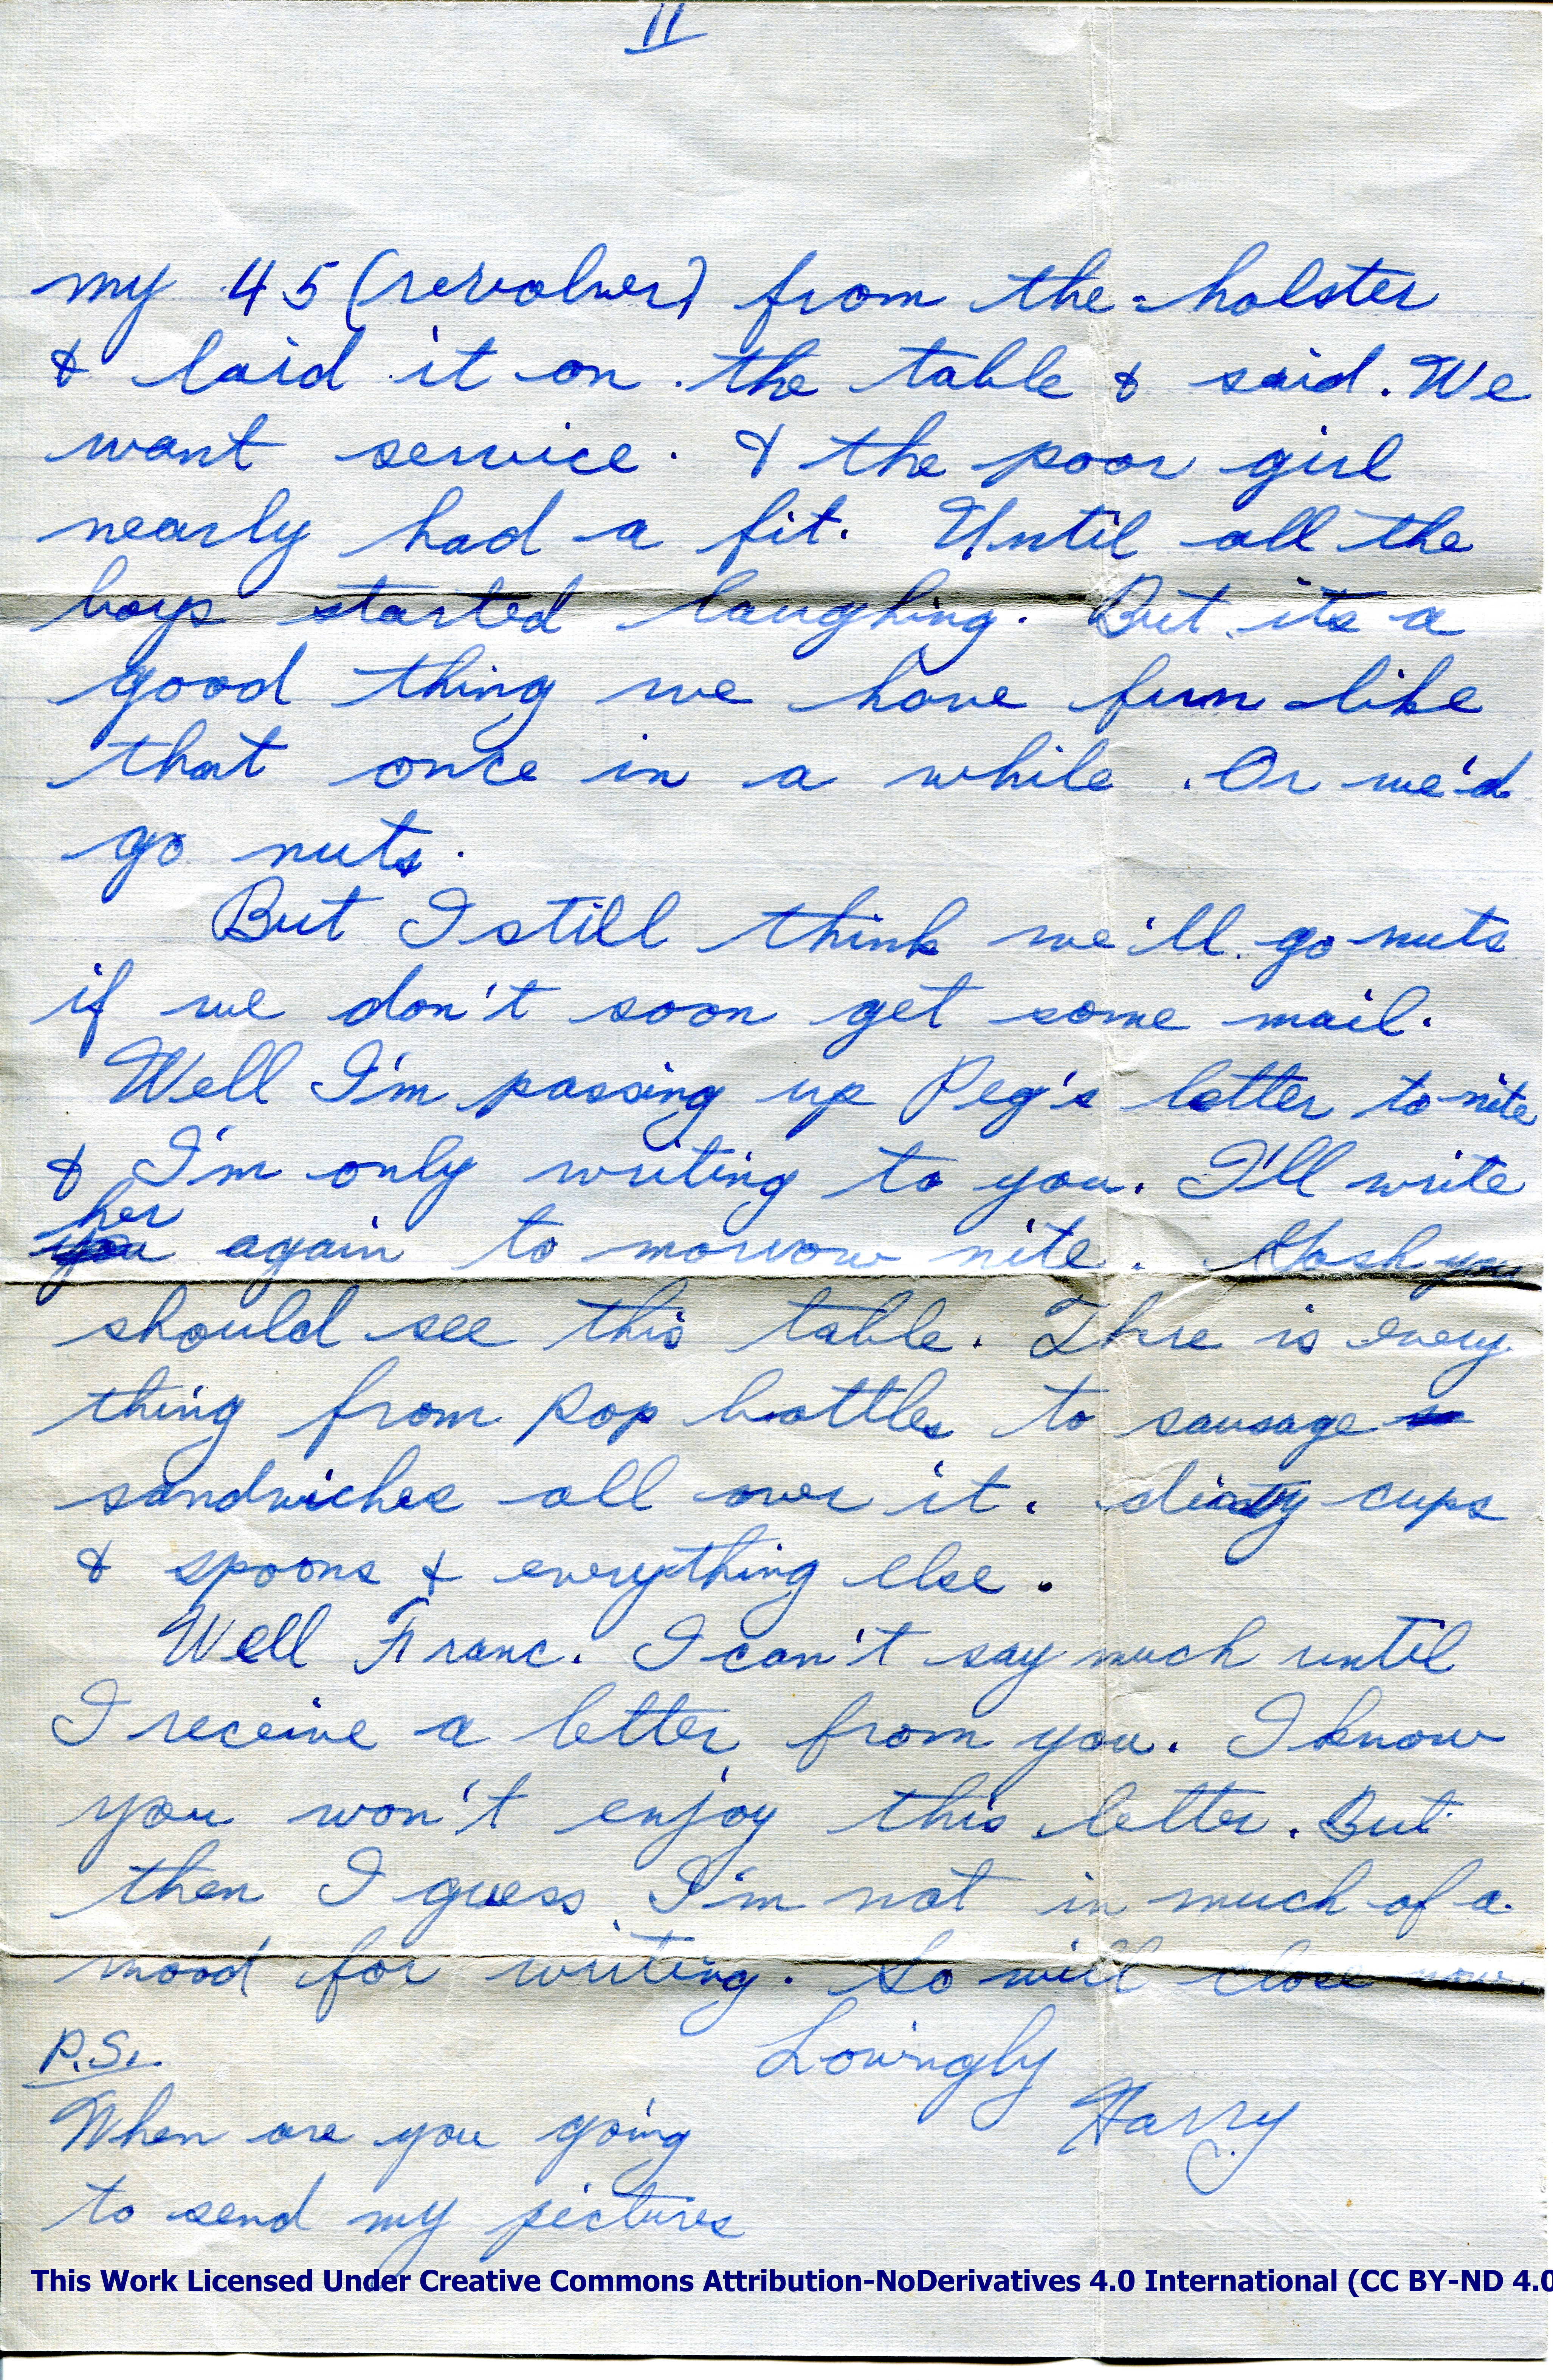 II
my 45 (revolver) from the holster
& laid it on the table & said. We
want service. & the poor girl
nearly had a fit. Until all the
boys started laughing. But its a
good thing we have fun like
that once in a while. Or we'd
go nuts.
But I still think we'll go nuts
if we don't soon get some mail.
Well I'm passing up Peg's letter to nite
& I'm only writing to you. I'll write
her
you again to morrow nite. Gosh you
should see this table. Thre is every
thing from pop bottles to sausage
sandwiches all over it. dirty cups
& spoons & everything else.
Well Franc. I can't say much until
I receive a letter from you. I know
you won't enjoy this letter. But
then I guess I'm not in much of a
mood for writing. So will close now.
Lovingly
Harry
P.S.
When are you going
to send my pictures
This Work Licensed Under Creative Commons Attribution-NoDerivatives 4.0 International (CC BY-ND 4.0